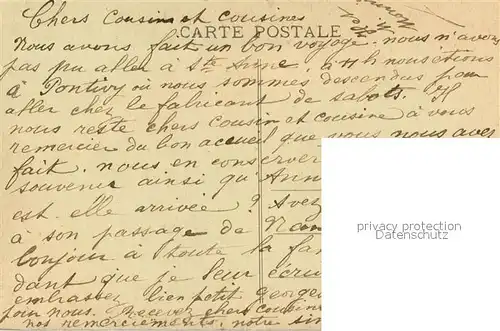 Chers Cousin et cousines
CARTE POSTALE
Nous avons fait un bon voyage. nous n'avons
pas pu aller à Ste Anne. à 11h nous étions
à Pontivy où nous sommes descendus pour
aller chez le fabricant de sabots. Il
nous reste chers cousin et cousine à vous
remercier du bon accueil que vous nous avez
fait. nous en conserver
souvenir ainsi qu'Ann
est-elle arrivée ? Avez
à son passage de
bonjour à toute la fa
dant que je leur écri
embrassez bien petit George
pour nous. Recevez chers cousins
nos remerciements. notre
privacy protection
Datenschutz